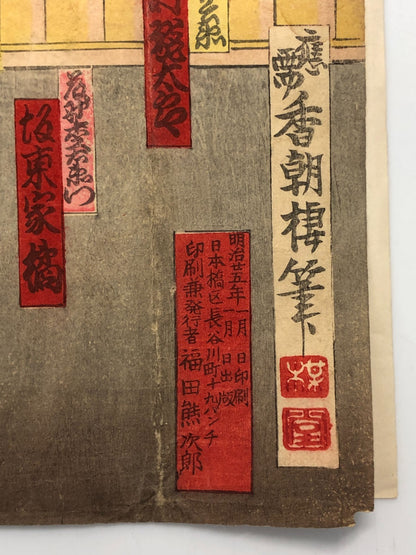 應需香朝楼筆
楳堂
明治廿五年一月 日印刷
一月 日出版
日本橋区長谷川町十九バンチ
印刷兼発行者 福田熊次郎
坂東家橘